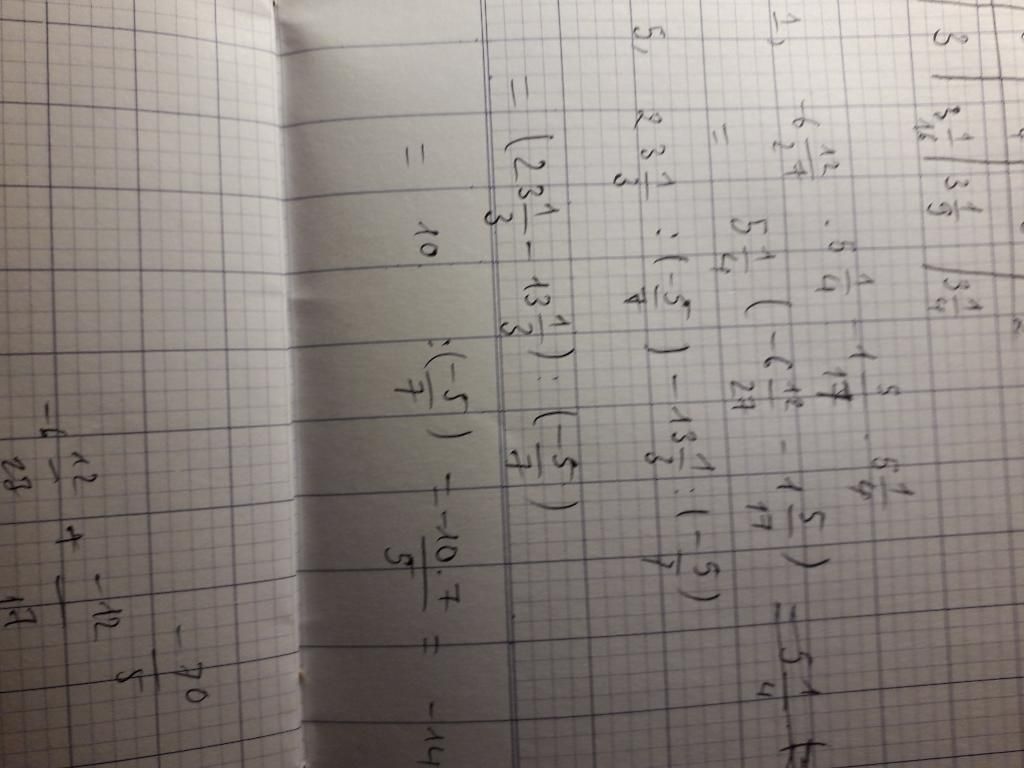 3 / 3 1/16 / 3 1/9 / 3 1/4
1) -6 12/27 · 5 1/4 - 1 5/17 · 5 1/4
= 5 1/4 ( -6 12/27 - 1 5/17 ) = 5 1/4
5, 23 1/3 : ( -5/7 ) - 13 1/3 : ( -5/7 )
= ( 23 1/3 - 13 1/3 ) : ( -5/7 )
= 10 : ( -5/7 ) = -10·7/5 = -14
-70/5